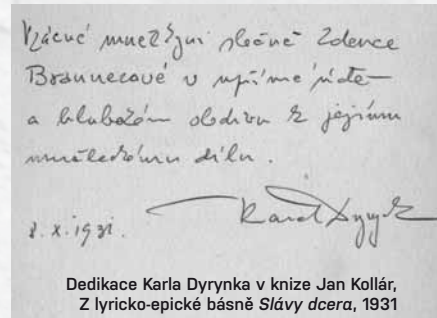 Vzácné umělkyni slečně Zdence
Braunerové v upřímné úctě
a hlubokém obdivu k jejímu
uměleckému dílu.
8. X. 1931. Karel Dyrynk
Dedikace Karla Dyrynka v knize Jan Kollár,
Z lyricko-epické básně Slávy dcera, 1931